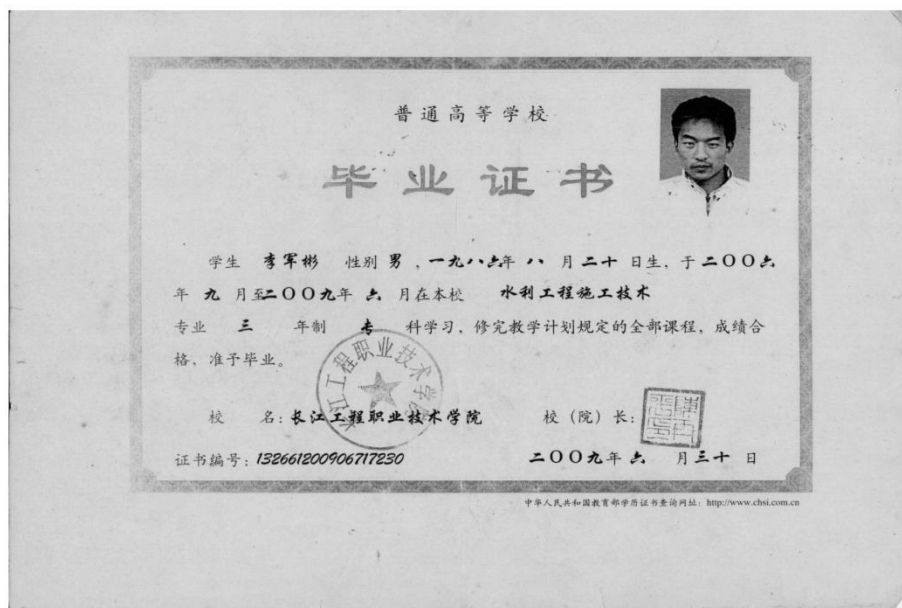 普通高等学校
毕业证书
学生 李军彬 性别 男 ，一九八六年 八 月 二十 日生，于 二〇〇六
年 九 月至二〇〇九年 六 月在本校 水利工程施工技术
专业 三 年制 专 科学习，修完教学计划规定的全部课程，成绩合
格，准予毕业。
长江工程职业技术学院
校 名：长江工程职业技术学院 校（院）长：
证书编号：132661200906717230 二〇〇九年 六 月三十 日
中华人民共和国教育部学历证书查询网址：http://www.chsi.com.cn